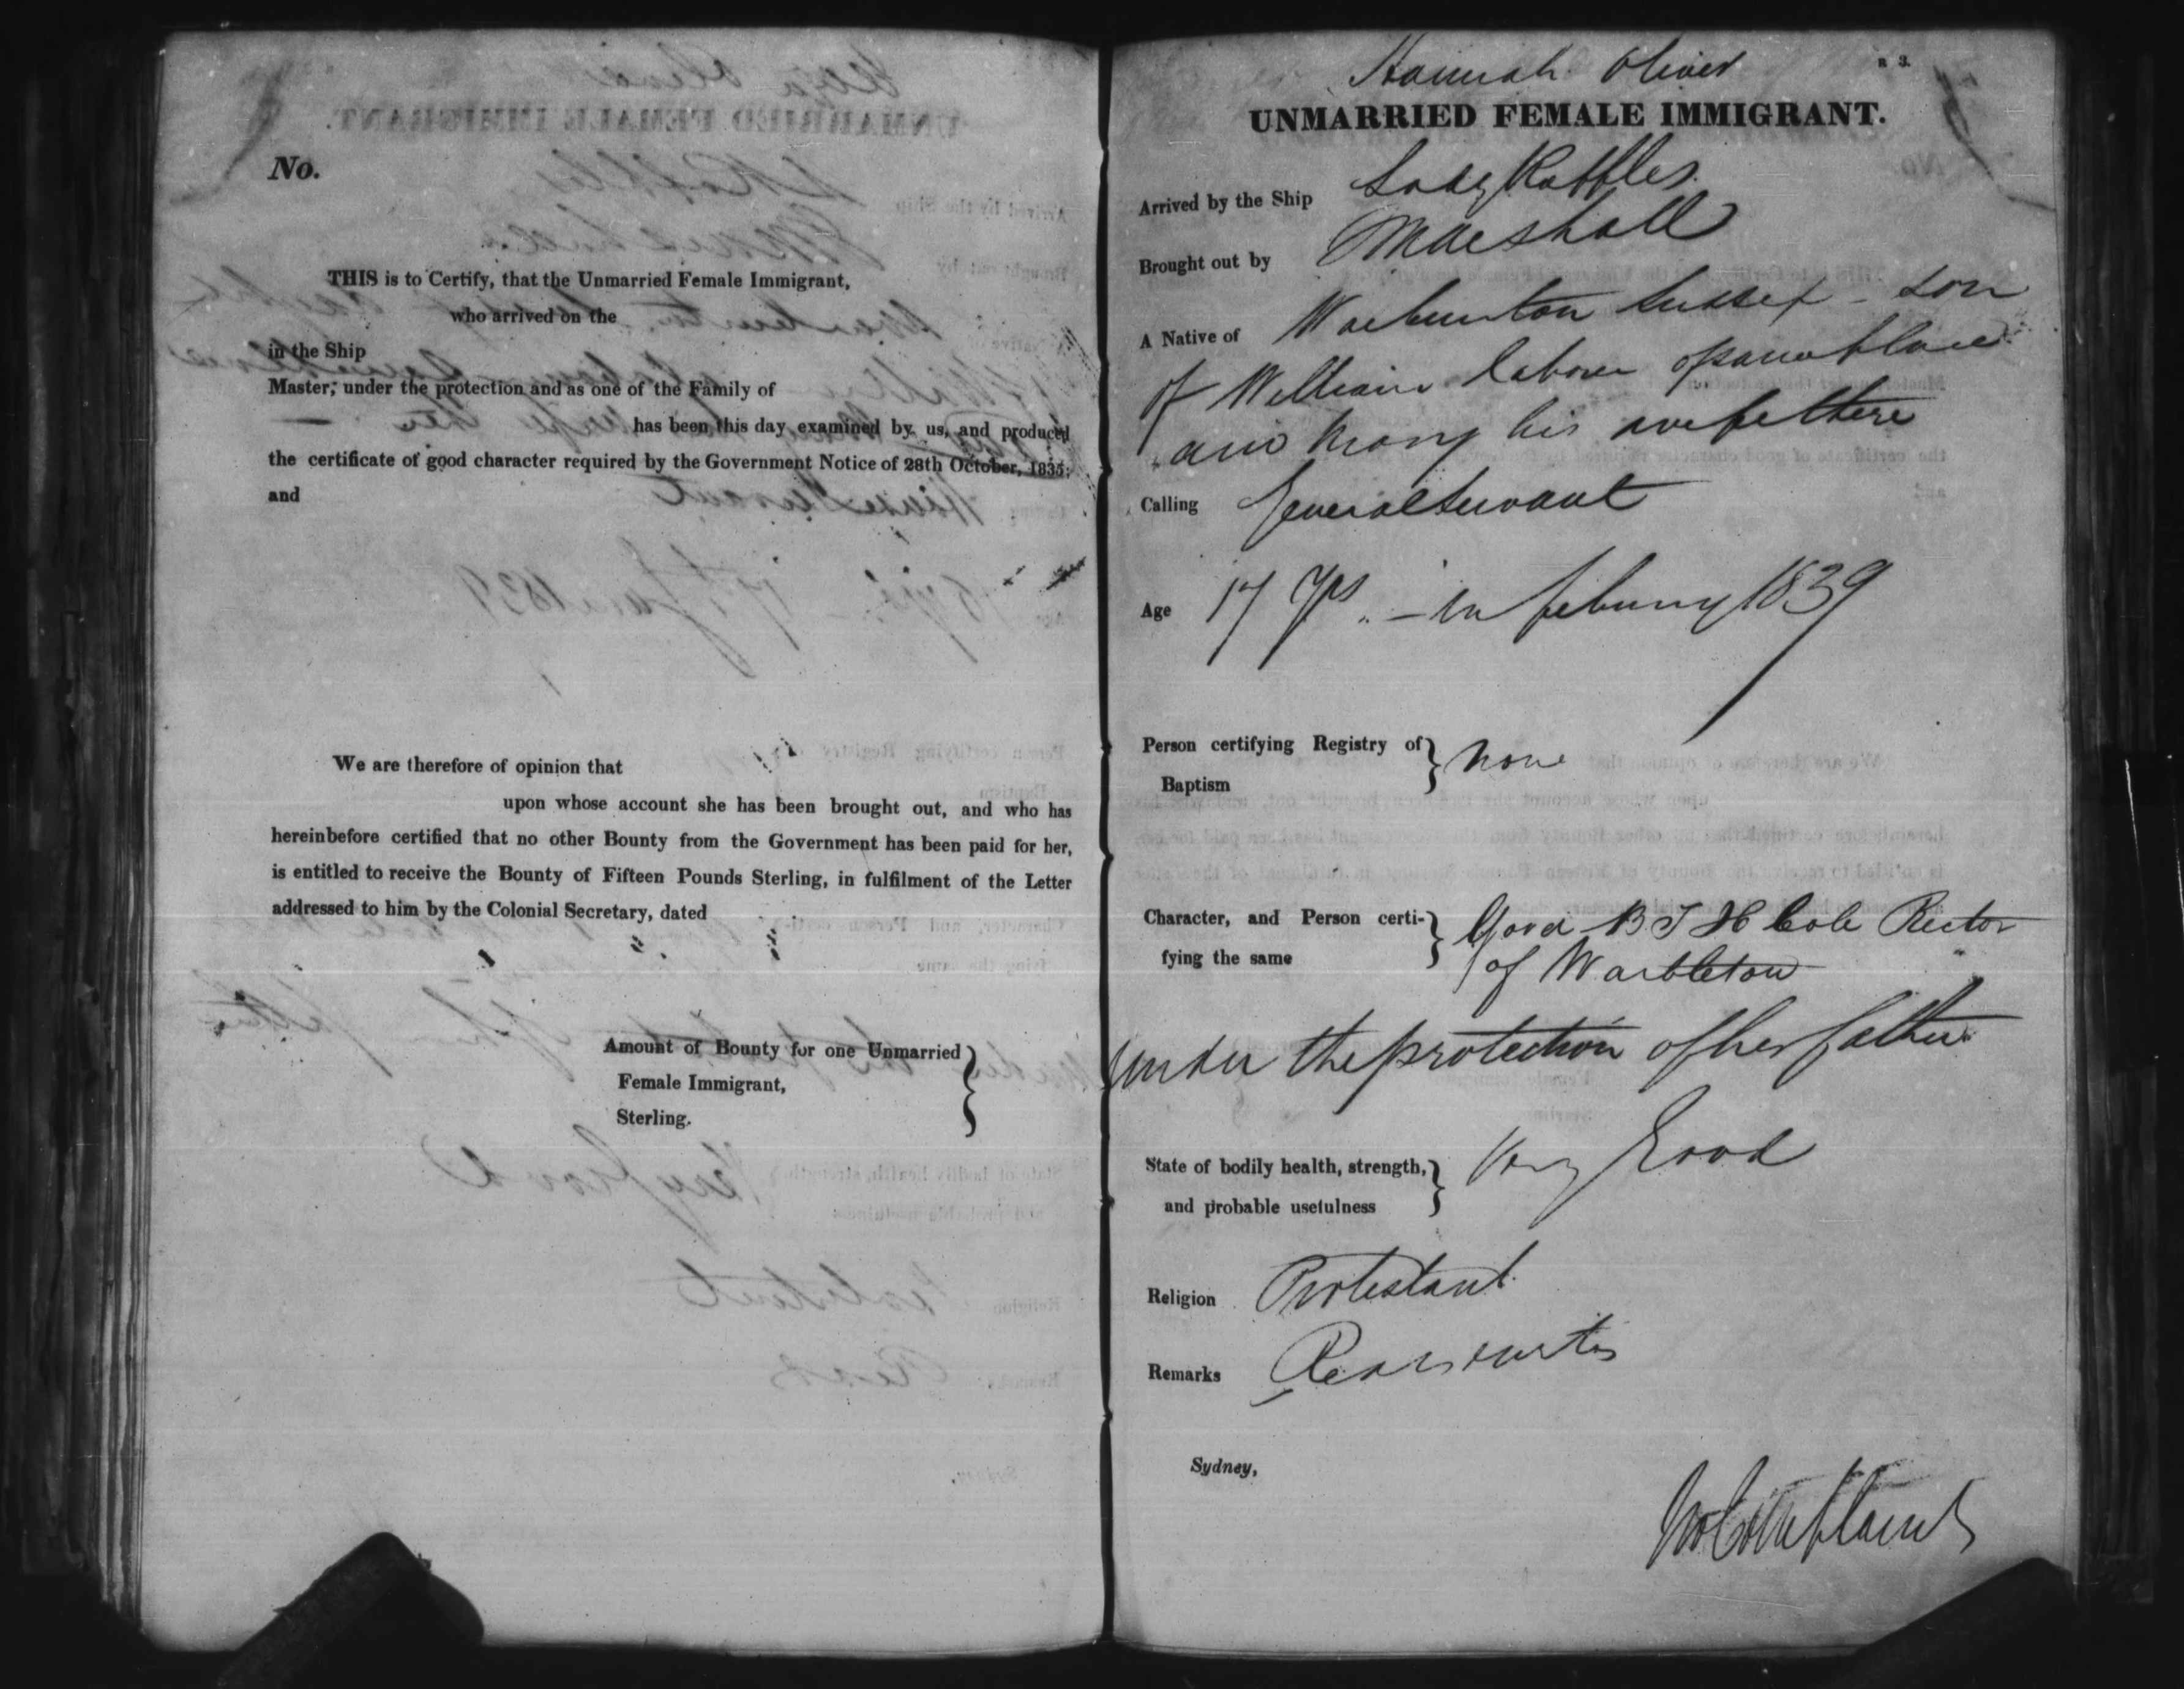 No.
THIS is to Certify, that the Unmarried Female Immigrant,
who arrived on the
in the Ship
Master, under the protection and as one of the Family of
has been this day examined by us, and produced
the certificate of good character required by the Government Notice of 28th October, 1835;
and
We are therefore of opinion that
upon whose account she has been brought out, and who has
hereinbefore certified that no other Bounty from the Government has been paid for her,
is entitled to receive the Bounty of Fifteen Pounds Sterling, in fulfilment of the Letter
addressed to him by the Colonial Secretary, dated
Amount of Bounty for one Unmarried
Female Immigrant,
Sterling.
Hannah Oliver
R 3.
UNMARRIED FEMALE IMMIGRANT.
Arrived by the Ship Lady Raffles
Brought out by Marshall
A Native of Warburton Sussex - son
of William labourer of same place
and Mary his wife there
Calling General Servant
Age 17 Yrs. - in february 1839
Person certifying Registry of Baptism } None
Character, and Person certifying the same } Good B T H Cole Rector
of Warbleton
under the protection of her father
State of bodily health, strength, and probable usefulness } Very Good
Religion Protestant
Remarks
Sydney,